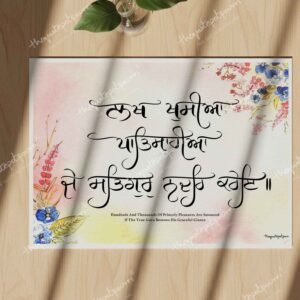 ਲਖ ਖੁਸੀਆ
ਪਾਤਿਸਾਹੀਆ
ਜੇ ਸਤਿਗੁਰੁ ਨਦਰਿ ਕਰੇਇ॥
Hundreds And Thousands Of Princely Pleasures Are Savoured
If The True Guru Bestows His Graceful Glance